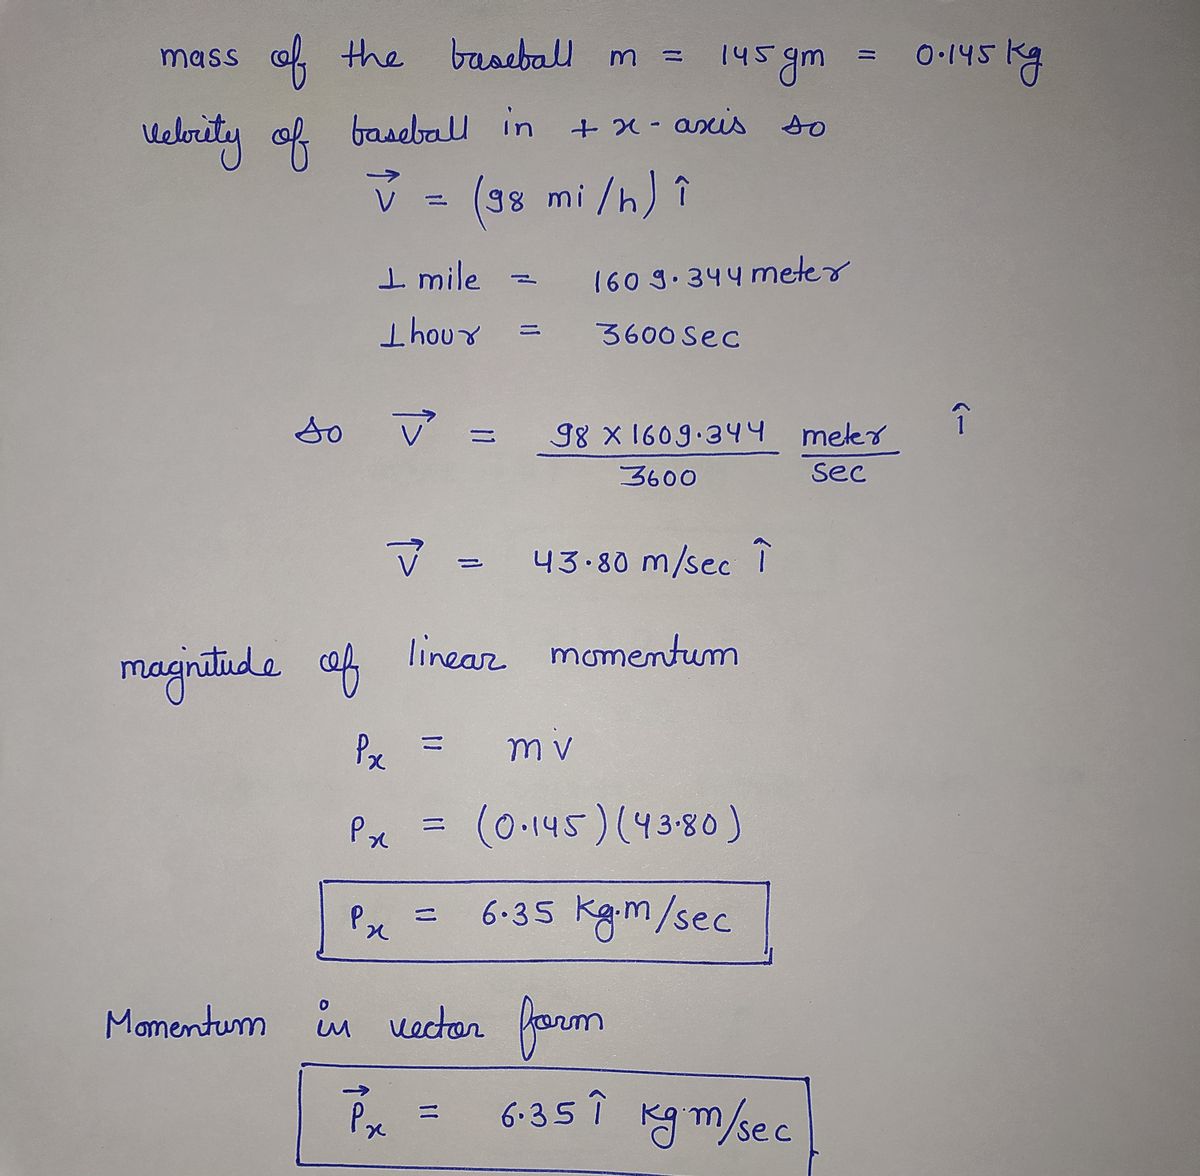 mass of the baseball m = 145 gm = 0.145 kg
velocity of baseball in + x - axis so
v⃗ = (98 mi/h) î
1 mile = 1609.344 meter
1 hour = 3600 sec
so v⃗ = 98 × 1609.344 / 3600 meter / sec î
v⃗ = 43.80 m/sec î
magnitude of linear momentum
Px = mv
Px = (0.145)(43.80)
Px = 6.35 kg.m/sec
Momentum in vector form
P⃗x = 6.35 î kg.m/sec